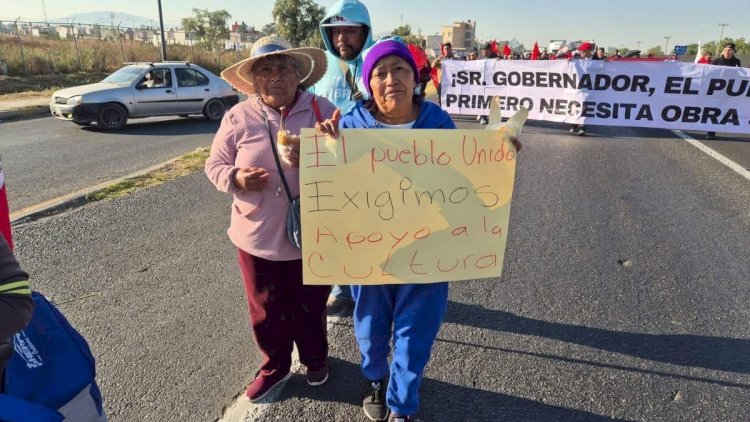 ¡SR. GOBERNADOR, EL PU
PRIMERO NECESITA OBRA
El pueblo Unido
Exigimos
Apoyo a la
Cultura